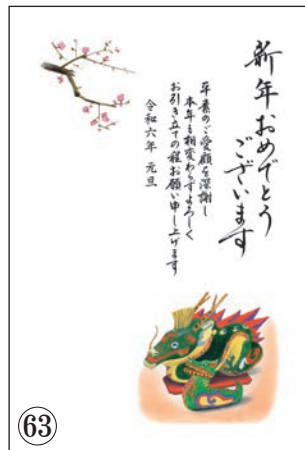 新年おめでとう
ございます
平素のご愛顧を深謝し
本年も相変わらずよろしく
お引き立ての程お願い申し上げます
令和六年 元旦
63